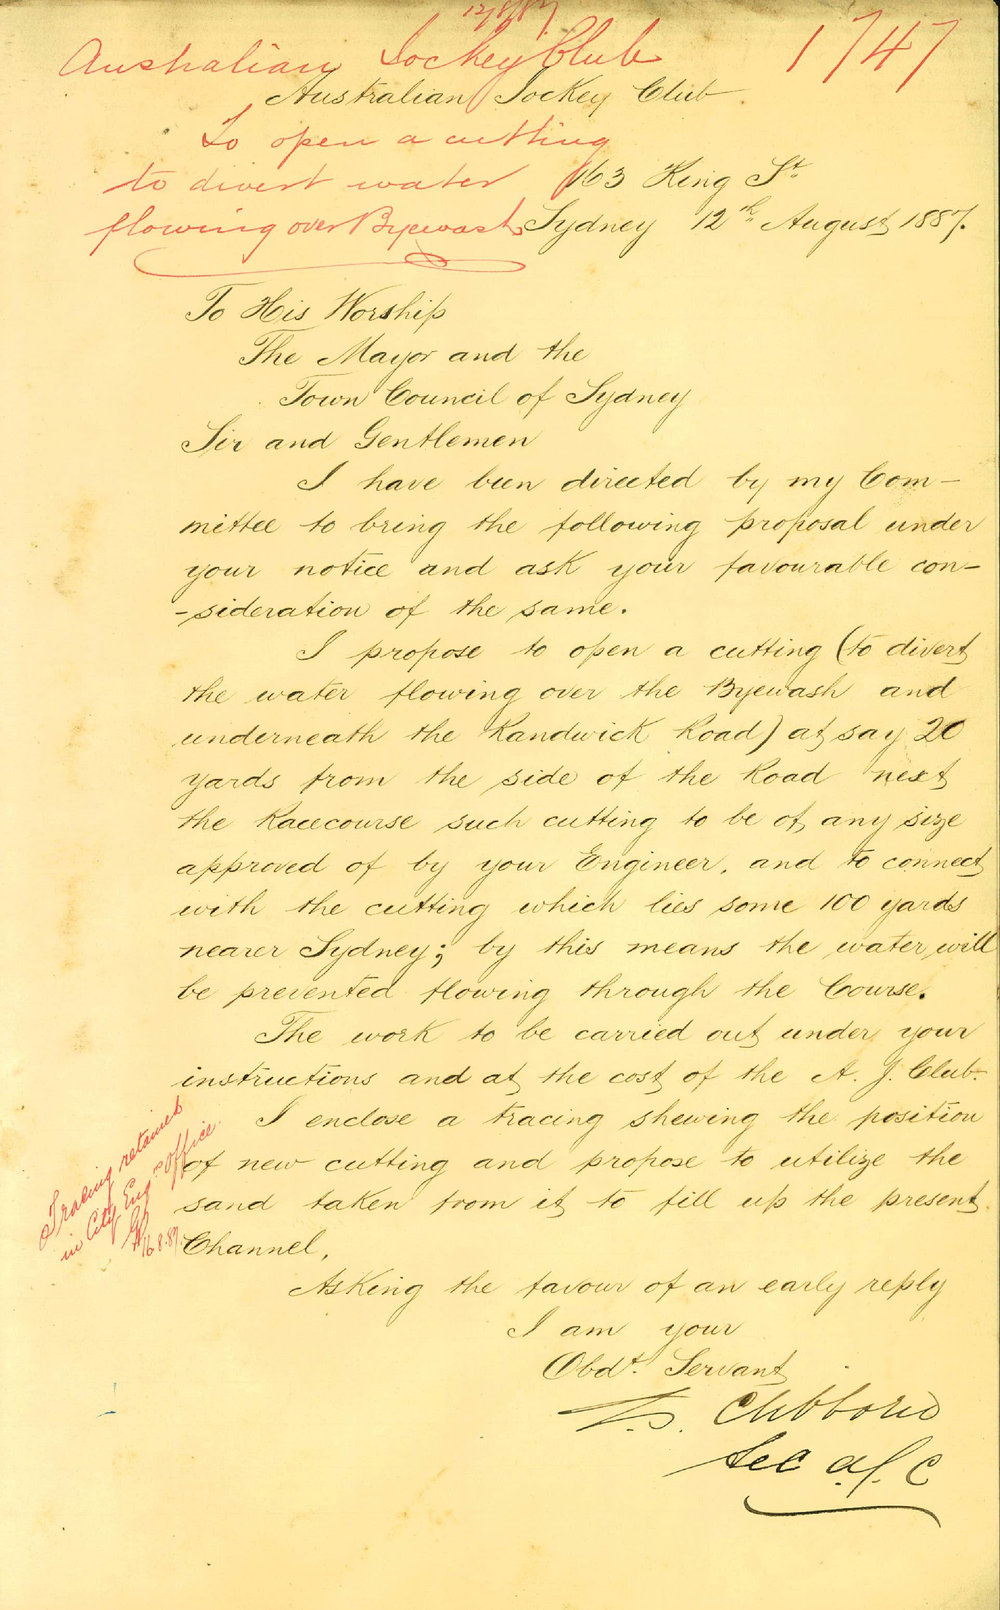 12/8/87
1747
Australian Jockey Club
Australian Jockey Club
To open a cutting
to divert water
flowing over Byewash
163 King St.
Sydney 12th August 1887.
To His Worship
The Mayor and the
Town Council of Sydney
Sir and Gentlemen
I have been directed by my Com-
mittee to bring the following proposal under
your notice and ask your favourable con-
-sideration of the same.
I propose to open a cutting (to divert
the water flowing over the Byewash and
underneath the Randwick Road) at say 20
yards from the side of the Road next
the Racecourse such cutting to be of any size
approved of by your Engineer, and to connect
with the cutting which lies some 100 yards
nearer Sydney; by this means the water will
be prevented flowing through the Course.
The work to be carried out under your
instructions and at the cost of the A. J. Club.
I enclose a tracing shewing the position
of new cutting and propose to utilize the
sand taken from it to fill up the present
Channel,
Tracing retained
in City Engrs Office
16.8.87
Asking the favour of an early reply
I am your
Obdt. Servant
T. S. Clibborn
Sec A.J.C